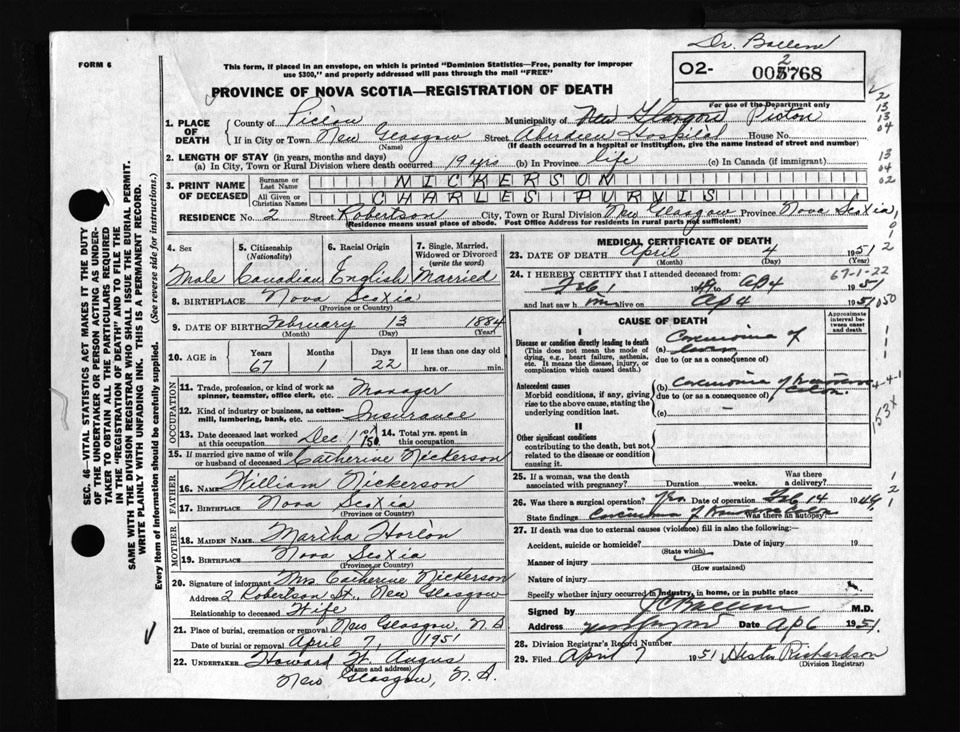 FORM 6
This form, if placed in an envelope, on which is printed "Dominion Statistics—Free, penalty for improper
use $300," and properly addressed will pass through the mail "FREE"
02-
PROVINCE OF NOVA SCOTIA—REGISTRATION OF DEATH
For use of the Department only
1. PLACE OF DEATH
County of Pictou Municipality of New Glasgow Pictou
If in City or Town New Glasgow Street Aberdeen Hospital House No.
(Name) (If death occurred in a hospital or institution, give the name instead of street and number)
2. LENGTH OF STAY (in years, months and days)
(a) In City, Town or Rural Division where death occurred 19 yrs (b) In Province life (c) In Canada (if immigrant)
3. PRINT NAME OF DECEASED
Surname or Last Name NICKERSON
All Given or Christian Names CHARLES PURVIS
RESIDENCE No. 2 Street Robertson City, Town or Rural Division New Glasgow Province Nova Scotia
Residence of deceased. Post Office Address for residents in rural parts not sufficient)
4. Sex 5. Citizenship (Nationality) 6. Racial Origin 7. Single, Married, Widowed or Divorced (write the word)
Male Canadian English Married
8. BIRTHPLACE Nova Scotia
(Province or Country)
9. DATE OF BIRTH February 13 1884
(Month) (Day) (Year)
10. AGE in Years Months Days If less than one day old
67 1 22 hrs. or min.
OCCUPATION
11. Trade, profession, or kind of work as spinner, teamster, office clerk, etc. Manager
12. Kind of industry or business, as cotton-mill, lumbering, bank, etc. Insurance
13. Date deceased last worked at this occupation Dec 1950 14. Total yrs. spent in this occupation
15. If married give name of wife or husband of deceased Catherine Nickerson
FATHER
16. Name William Nickerson
17. BIRTHPLACE Nova Scotia
(Province or Country)
MOTHER
18. MAIDEN NAME Martha Horton
19. BIRTHPLACE Nova Scotia
(Province or Country)
20. Signature of informant Mrs Catherine Nickerson
Address 2 Robertson St., New Glasgow
Relationship to deceased Wife
21. Place of burial, cremation or removal New Glasgow, N.S
Date of burial or removal April 7, 1951
22. UNDERTAKER Howard W. Angus
(Name and address)
New Glasgow, N.S.
MEDICAL CERTIFICATE OF DEATH
23. DATE OF DEATH April 4 1951
(Month) (Day) (Year)
24. I HEREBY CERTIFY that I attended deceased from:
67-1-22
Feb 1 Ap 4 1951
and last saw him alive on Ap 4 1951
CAUSE OF DEATH
Approximate interval between onset and death
I
Disease or condition directly leading to death
(This does not mean the mode of dying, e.g., heart failure, asthenia, etc. It means the disease, injury, or complication which caused death.)
(a) Carcinoma of
due to (or as a consequence of)
Antecedent causes
Morbid conditions, if any, giving rise to the above cause, stating the underlying condition last.
(b) Carcinoma of Transverse Colon.
due to (or as a consequence of)
(c) —
II
Other significant conditions
contributing to the death, but not related to the disease or condition causing it.
25. If a woman, was the death associated with pregnancy? Duration weeks. Was there a delivery?
26. Was there a surgical operation? Yes Date of operation Feb 14 1949
State findings Carcinoma of Transverse Colon Was there an autopsy?
27. If death was due to external causes (violence) fill in also the following:—
Accident, suicide or homicide? Date of injury 19
(State which)
Manner of injury
(How sustained)
Nature of injury
Specify whether injury occurred in industry, in home, or in public place
Signed by M.D.
Address New Glasgow Date Ap 6 1951.
28. Division Registrar's Record Number
29. Filed April 7 1951 Hester Richardson
(Division Registrar)
SEC. 46—VITAL STATISTICS ACT MAKES IT THE DUTY
OF THE UNDERTAKER OR PERSON ACTING AS UNDER-
TAKER TO OBTAIN ALL THE PARTICULARS REQUIRED
IN THE "REGISTRATION OF DEATH" AND TO FILE THE
SAME WITH THE DIVISION REGISTRAR WHO SHALL ISSUE THE BURIAL PERMIT.
WRITE PLAINLY WITH UNFADING INK. THIS IS A PERMANENT RECORD.
Every item of information should be carefully supplied. (See reverse side for instructions.)